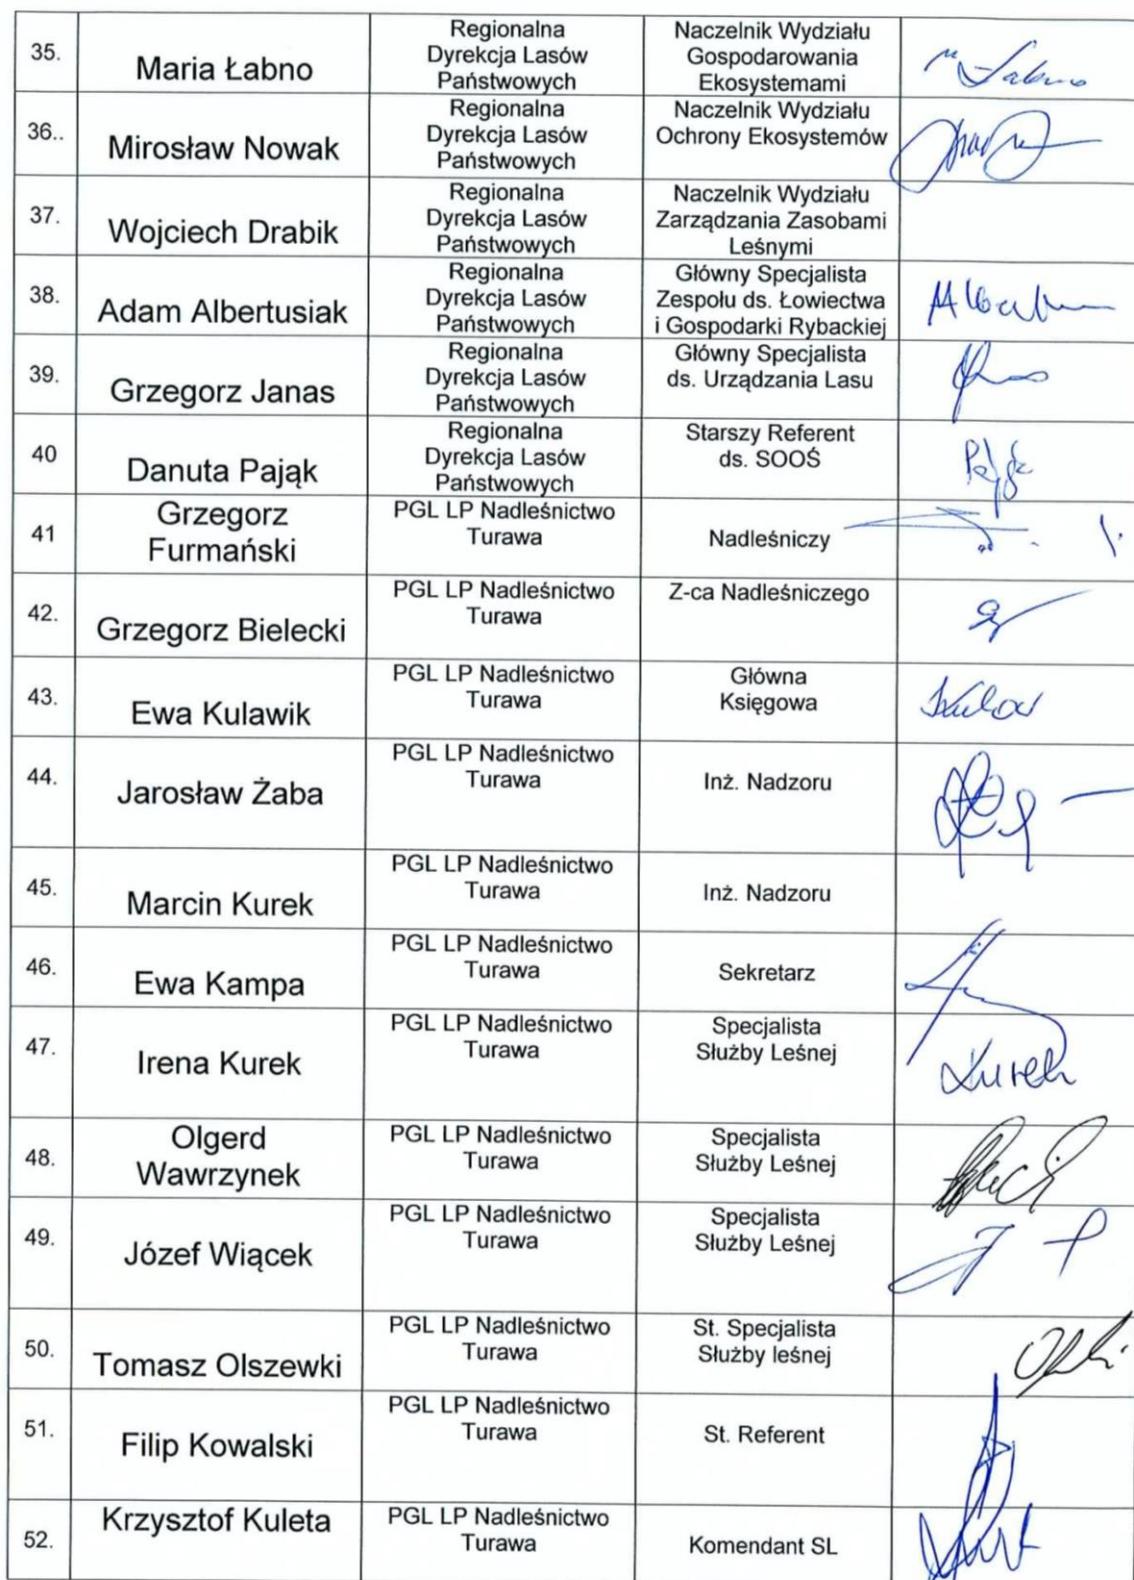 35.
Maria Łabno
Regionalna
Dyrekcja Lasów
Państwowych
Naczelnik Wydziału
Gospodarowania
Ekosystemami
36..
Mirosław Nowak
Regionalna
Dyrekcja Lasów
Państwowych
Naczelnik Wydziału
Ochrony Ekosystemów
37.
Wojciech Drabik
Regionalna
Dyrekcja Lasów
Państwowych
Naczelnik Wydziału
Zarządzania Zasobami
Leśnymi
38.
Adam Albertusiak
Regionalna
Dyrekcja Lasów
Państwowych
Główny Specjalista
Zespołu ds. Łowiectwa
i Gospodarki Rybackiej
39.
Grzegorz Janas
Regionalna
Dyrekcja Lasów
Państwowych
Główny Specjalista
ds. Urządzania Lasu
40
Danuta Pająk
Regionalna
Dyrekcja Lasów
Państwowych
Starszy Referent
ds. SOOŚ
41
Grzegorz
Furmański
PGL LP Nadleśnictwo
Turawa
Nadleśniczy
42.
Grzegorz Bielecki
PGL LP Nadleśnictwo
Turawa
Z-ca Nadleśniczego
43.
Ewa Kulawik
PGL LP Nadleśnictwo
Turawa
Główna
Księgowa
44.
Jarosław Żaba
PGL LP Nadleśnictwo
Turawa
Inż. Nadzoru
45.
Marcin Kurek
PGL LP Nadleśnictwo
Turawa
Inż. Nadzoru
46.
Ewa Kampa
PGL LP Nadleśnictwo
Turawa
Sekretarz
47.
Irena Kurek
PGL LP Nadleśnictwo
Turawa
Specjalista
Służby Leśnej
Kurek
48.
Olgerd
Wawrzynek
PGL LP Nadleśnictwo
Turawa
Specjalista
Służby Leśnej
49.
Józef Wiącek
PGL LP Nadleśnictwo
Turawa
Specjalista
Służby Leśnej
50.
Tomasz Olszewki
PGL LP Nadleśnictwo
Turawa
St. Specjalista
Służby leśnej
51.
Filip Kowalski
PGL LP Nadleśnictwo
Turawa
St. Referent
52.
Krzysztof Kuleta
PGL LP Nadleśnictwo
Turawa
Komendant SL